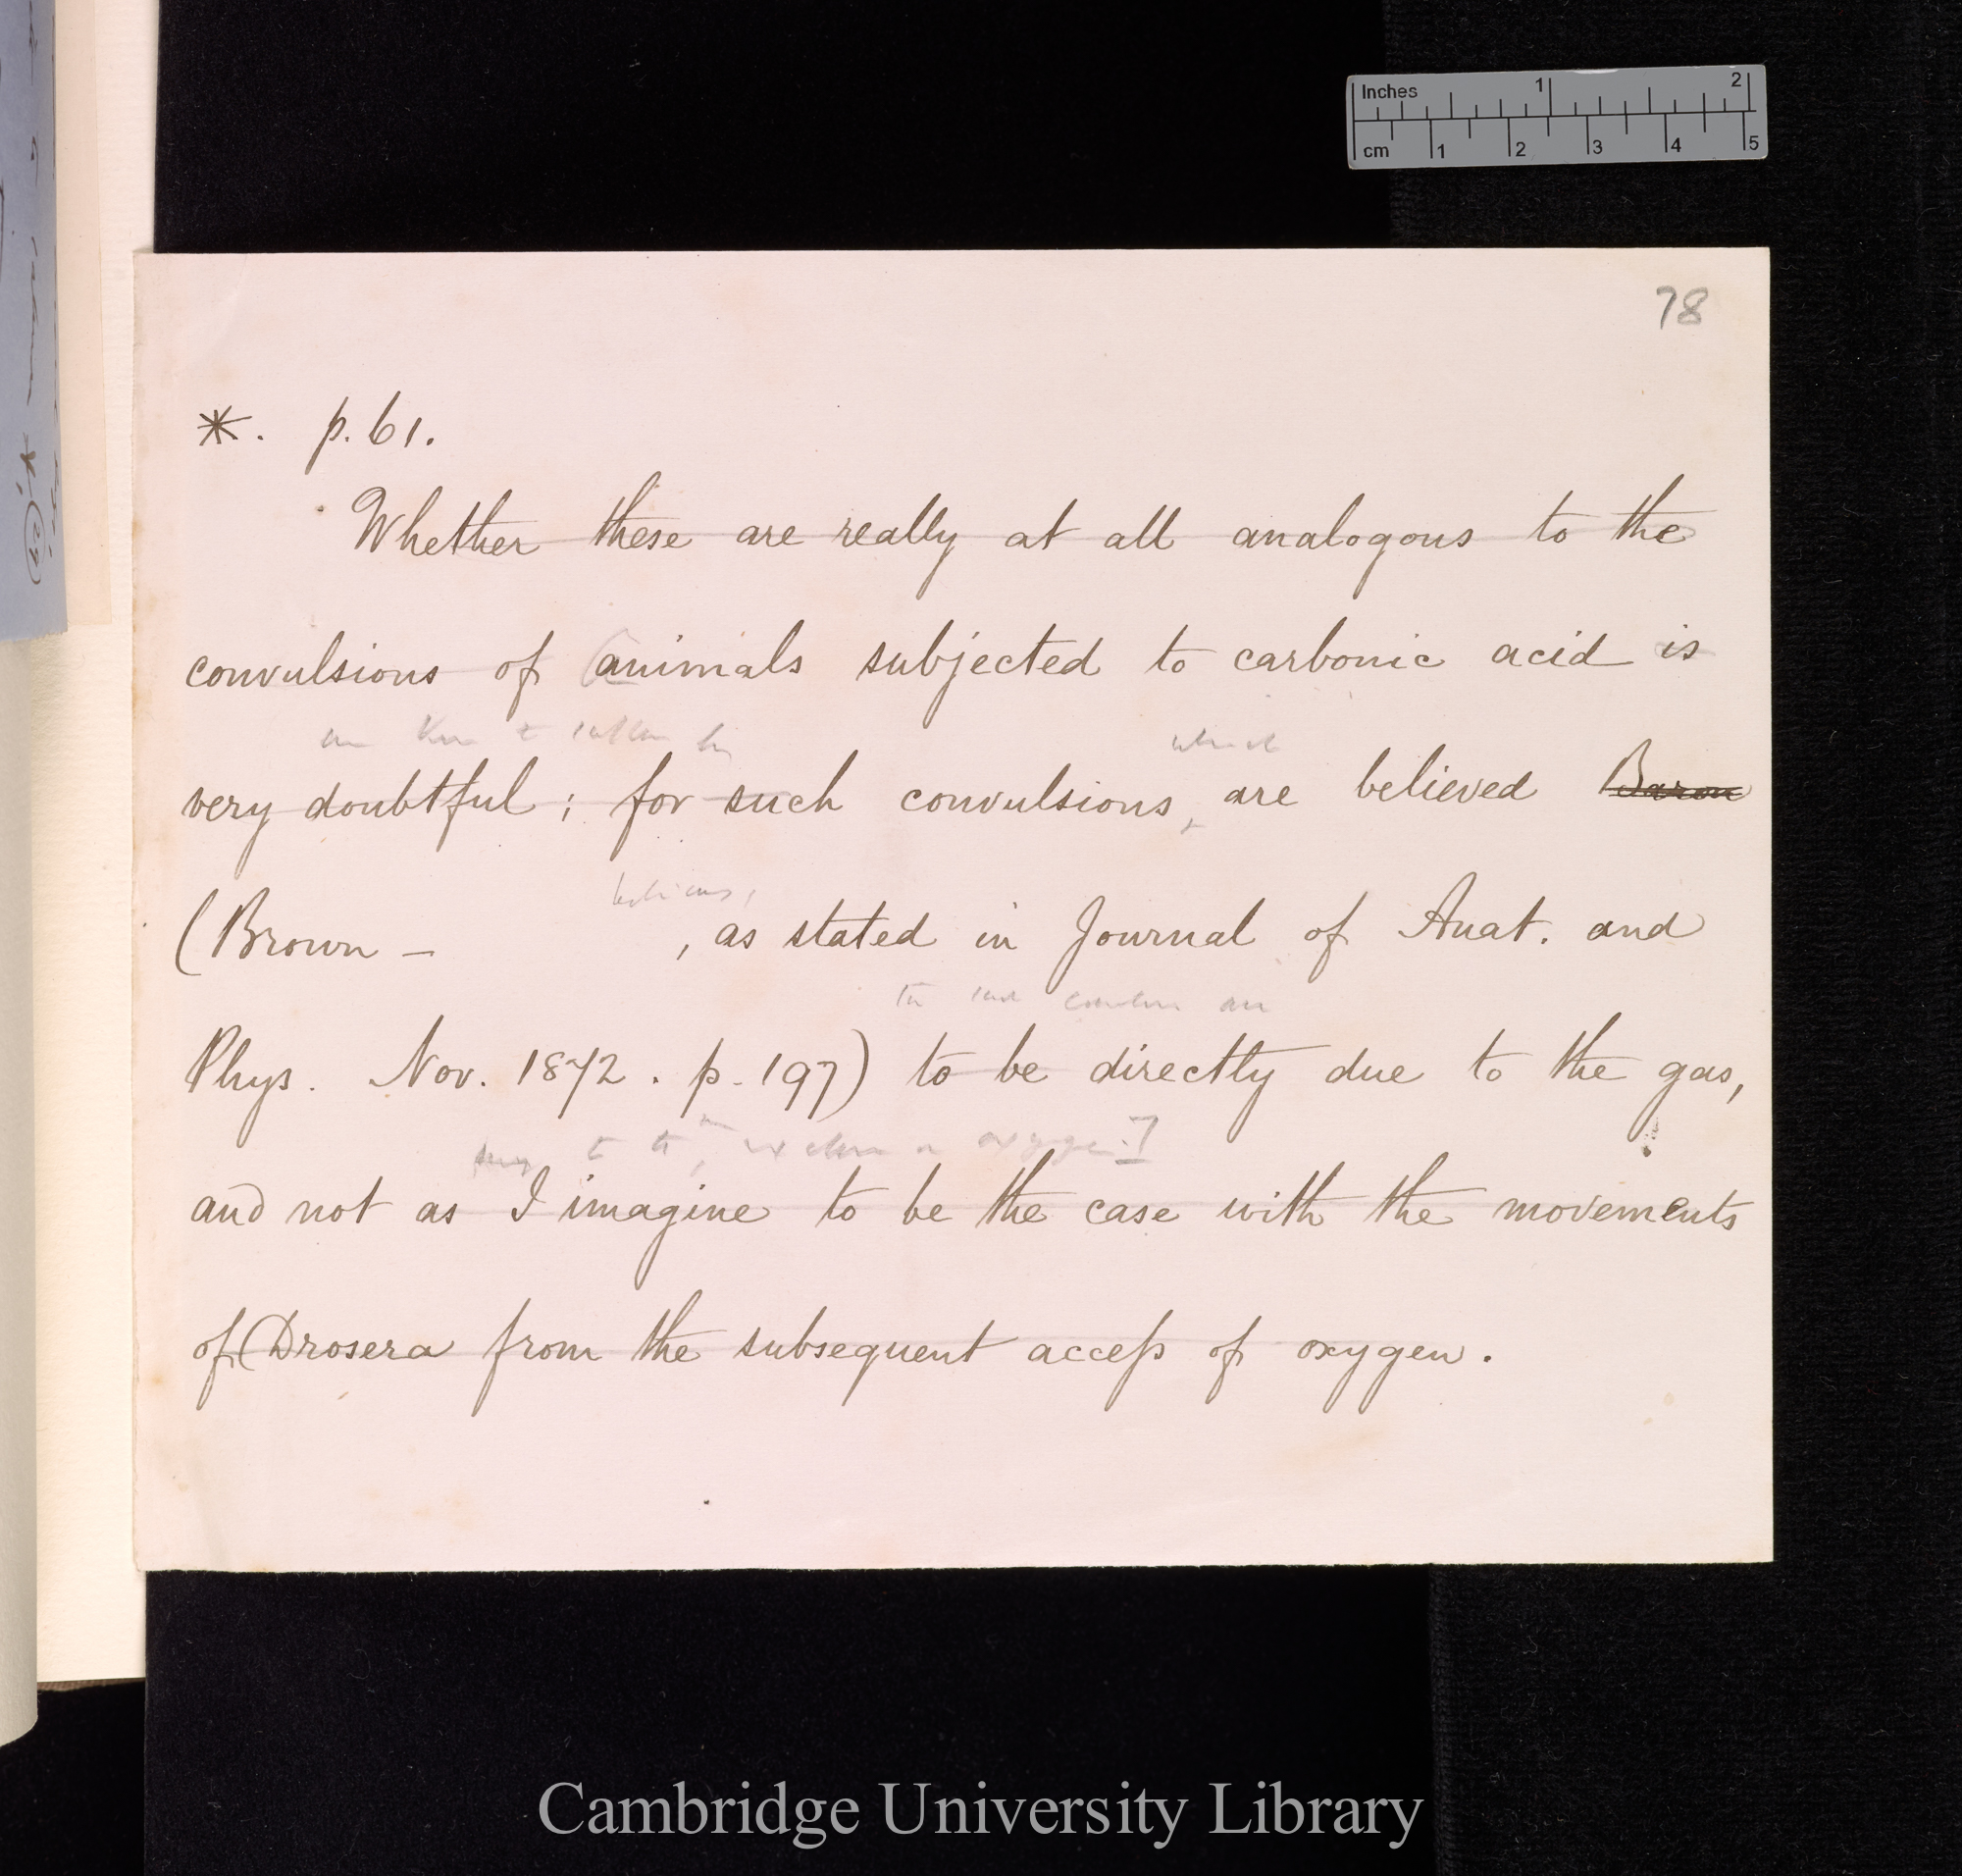 Inches 1 2
cm 1 2 3 4 5
78
*. p. 61.
Whether these are really at all analogous to the
convulsions of animals subjected to carbonic acid is
which
very doubtful ; for such convulsions, are believed Baron
believes,
(Brown – , as stated in Journal of Anat. and
Phys. Nov. 1872. p. 197) to be directly due to the gas,
oxygen.]
and not as I imagine to be the case with the movements
of (Drosera from the subsequent acceſs of oxygen.
Cambridge University Library